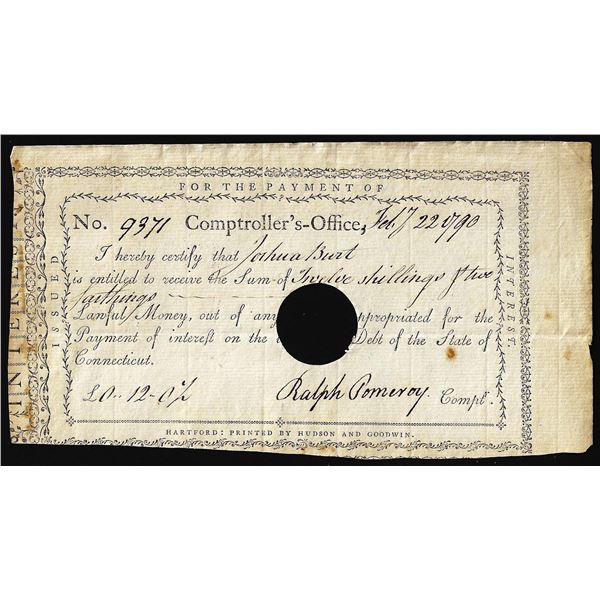 FOR THE PAYMENT OF
ISSUED
INTEREST.
No. 9371 Comptroller's-Office, Feby 22 1790
I hereby certify that Joshua Burt
is entitled to receive the Sum of Twelve shillings & two
farthings
Lawful Money, out of any appropriated for the
Payment of interest on the Debt of the State of
Connecticut.
£0-12-0½
Ralph Pomeroy Comptr.
HARTFORD: PRINTED BY HUDSON AND GOODWIN.